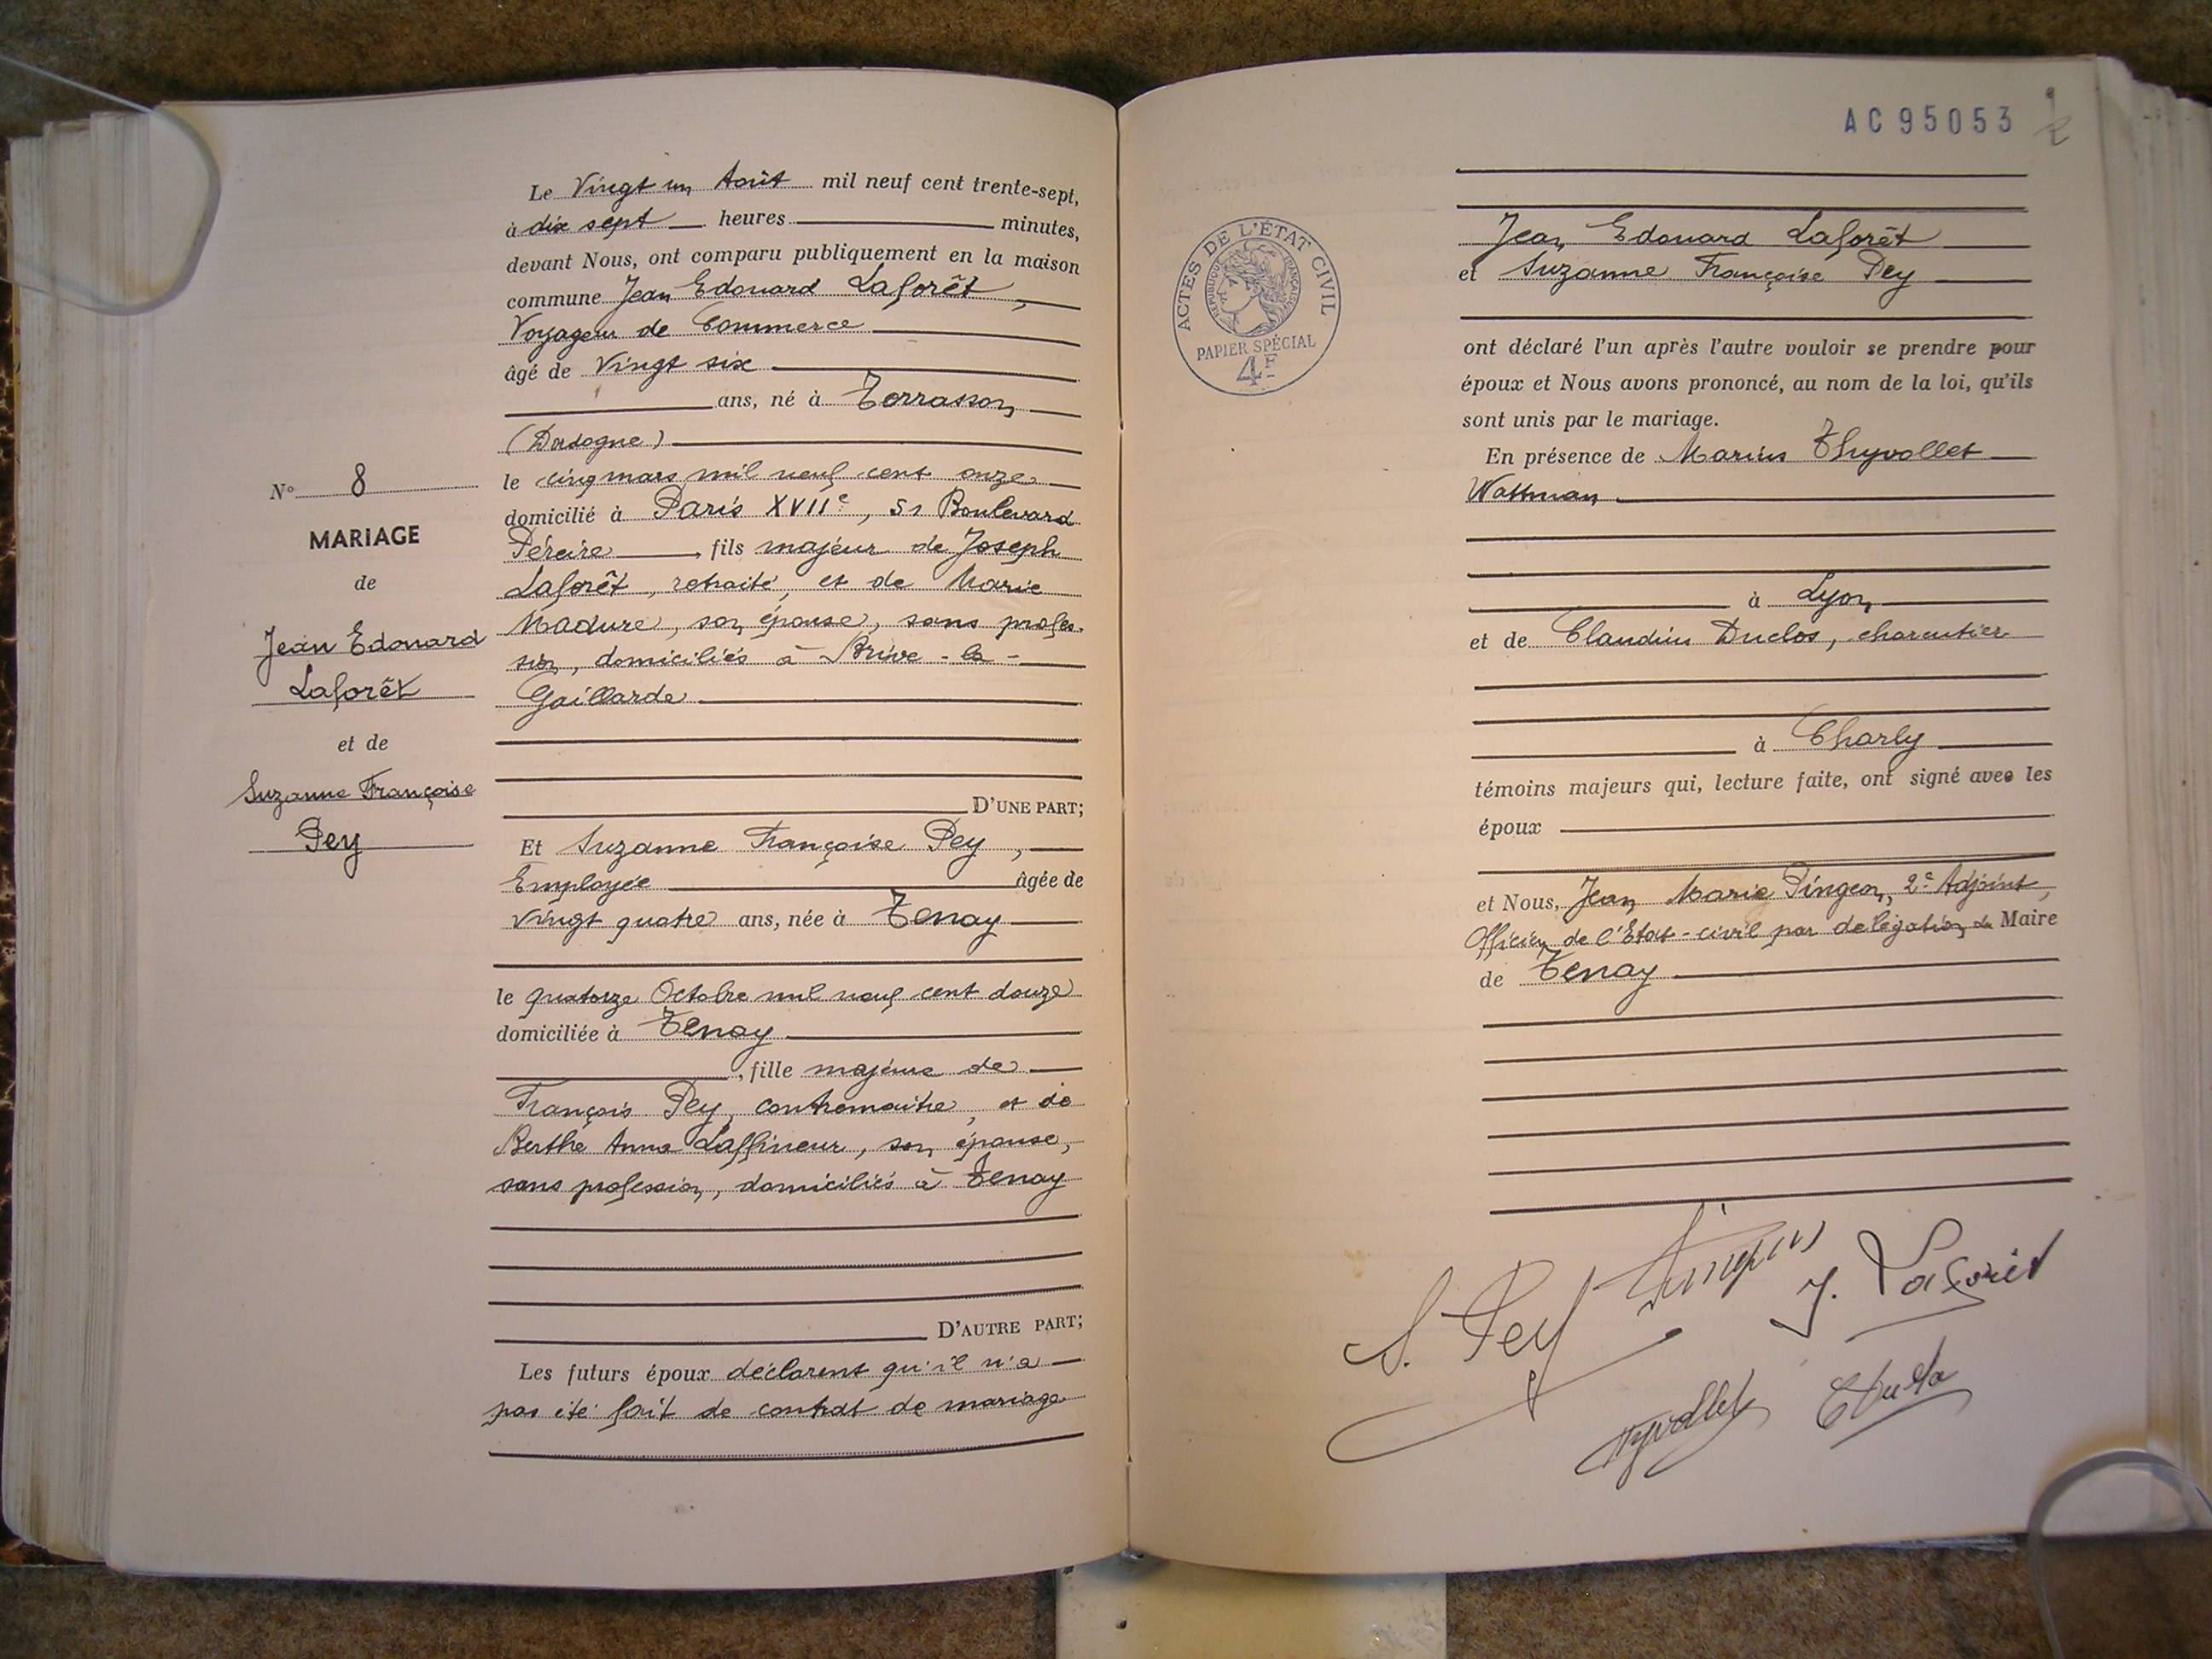 N° 8
MARIAGE
de
Jean Edouard
Laforêt
et de
Suzanne Françoise
Pey
Le Vingt un Août mil neuf cent trente-sept,
à dix sept heures minutes,
devant Nous, ont comparu publiquement en la maison
commune Jean Edouard Laforêt,
Voyageur de Commerce
âgé de Vingt six
ans, né à Terrasson
(Dordogne)
le cinq mars mil neuf cent onze
domicilié à Paris XVIIe, 51 Boulevard
Péreire, fils majeur de Joseph
Laforêt, retraité, et de Marie
Madure, son épouse, sans profes-
sion, domiciliés à Brive-la-
Gaillarde
D'UNE PART;
Et Suzanne Françoise Pey,
Employée âgée de
Vingt quatre ans, née à Tenay
le quatorze Octobre mil neuf cent douze
domiciliée à Tenay
, fille majeure de
François Pey, contremaître, et de
Berthe Anna Laffineur, son épouse,
sans profession, domiciliés à Tenay
D'AUTRE PART;
Les futurs époux déclarent qu'il n'a
pas été fait de contrat de mariage
AC95053
ACTES DE L'ÉTAT CIVIL
RÉPUBLIQUE FRANÇAISE
PAPIER SPÉCIAL
4F
Jean Edouard Laforêt
et Suzanne Françoise Pey
ont déclaré l'un après l'autre vouloir se prendre pour
époux et Nous avons prononcé, au nom de la loi, qu'ils
sont unis par le mariage.
En présence de Marius Thyvollet
Wattman
à Lyon
et de Claudius Duclos, charcutier
à Charly
témoins majeurs qui, lecture faite, ont signé avec les
époux
et Nous, Jean Marie Pingeon, 2e Adjoint,
Officier de l'Etat-civil par délégation du Maire
de Tenay
S. Pey
J. Laforêt
Thyvollet